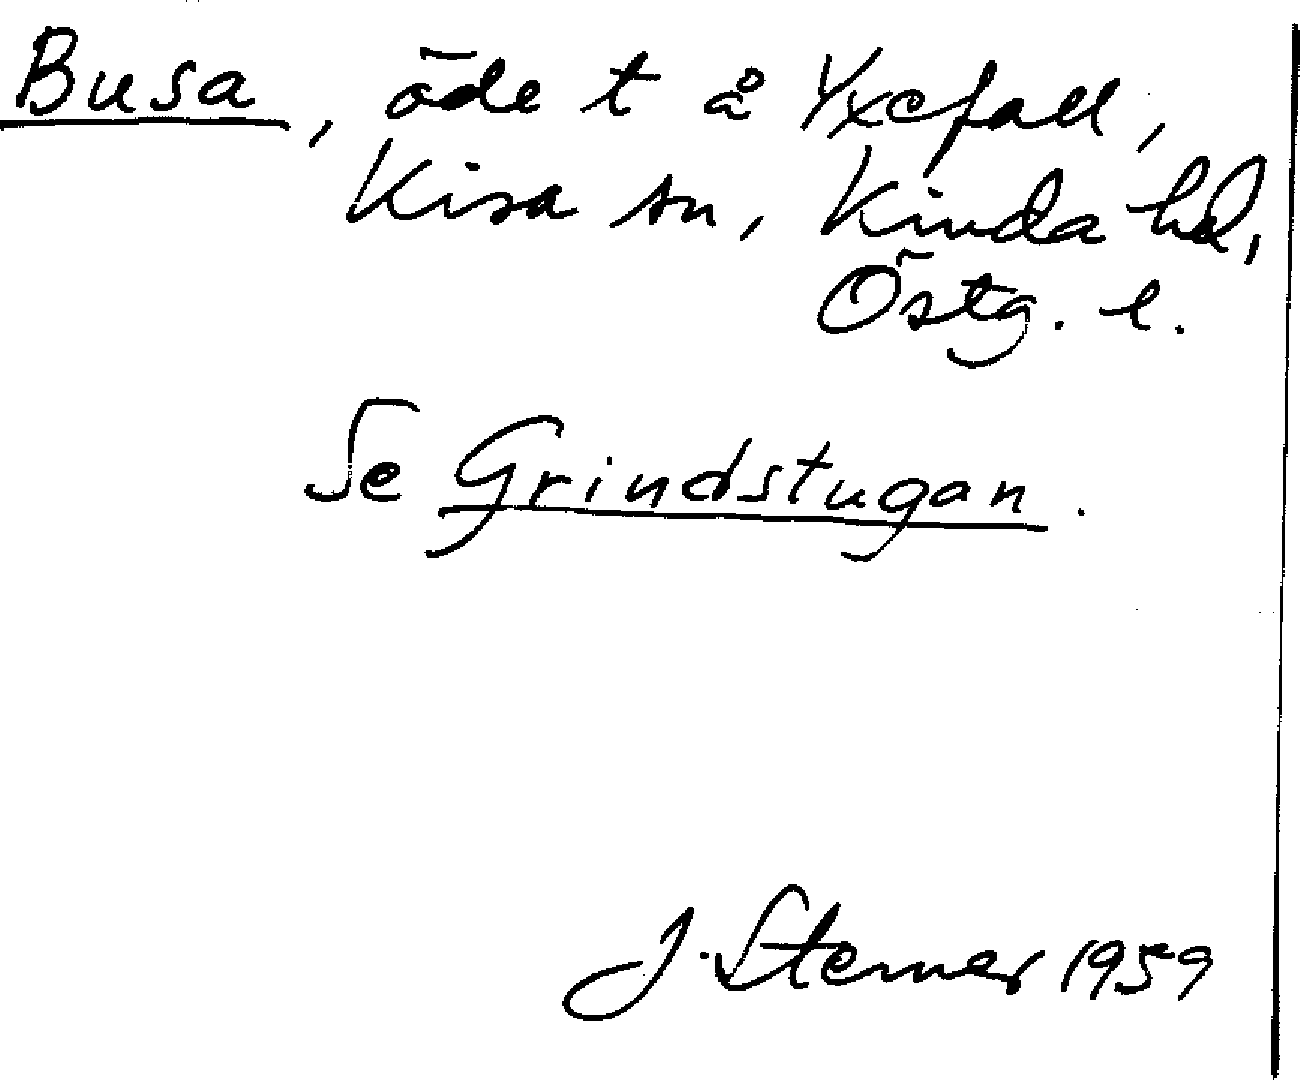 Busa, öde t å Yxefall,
Kisa sn, Kinda hd,
Östg. l.
Se Grindstugan.
J. Sterner 1959